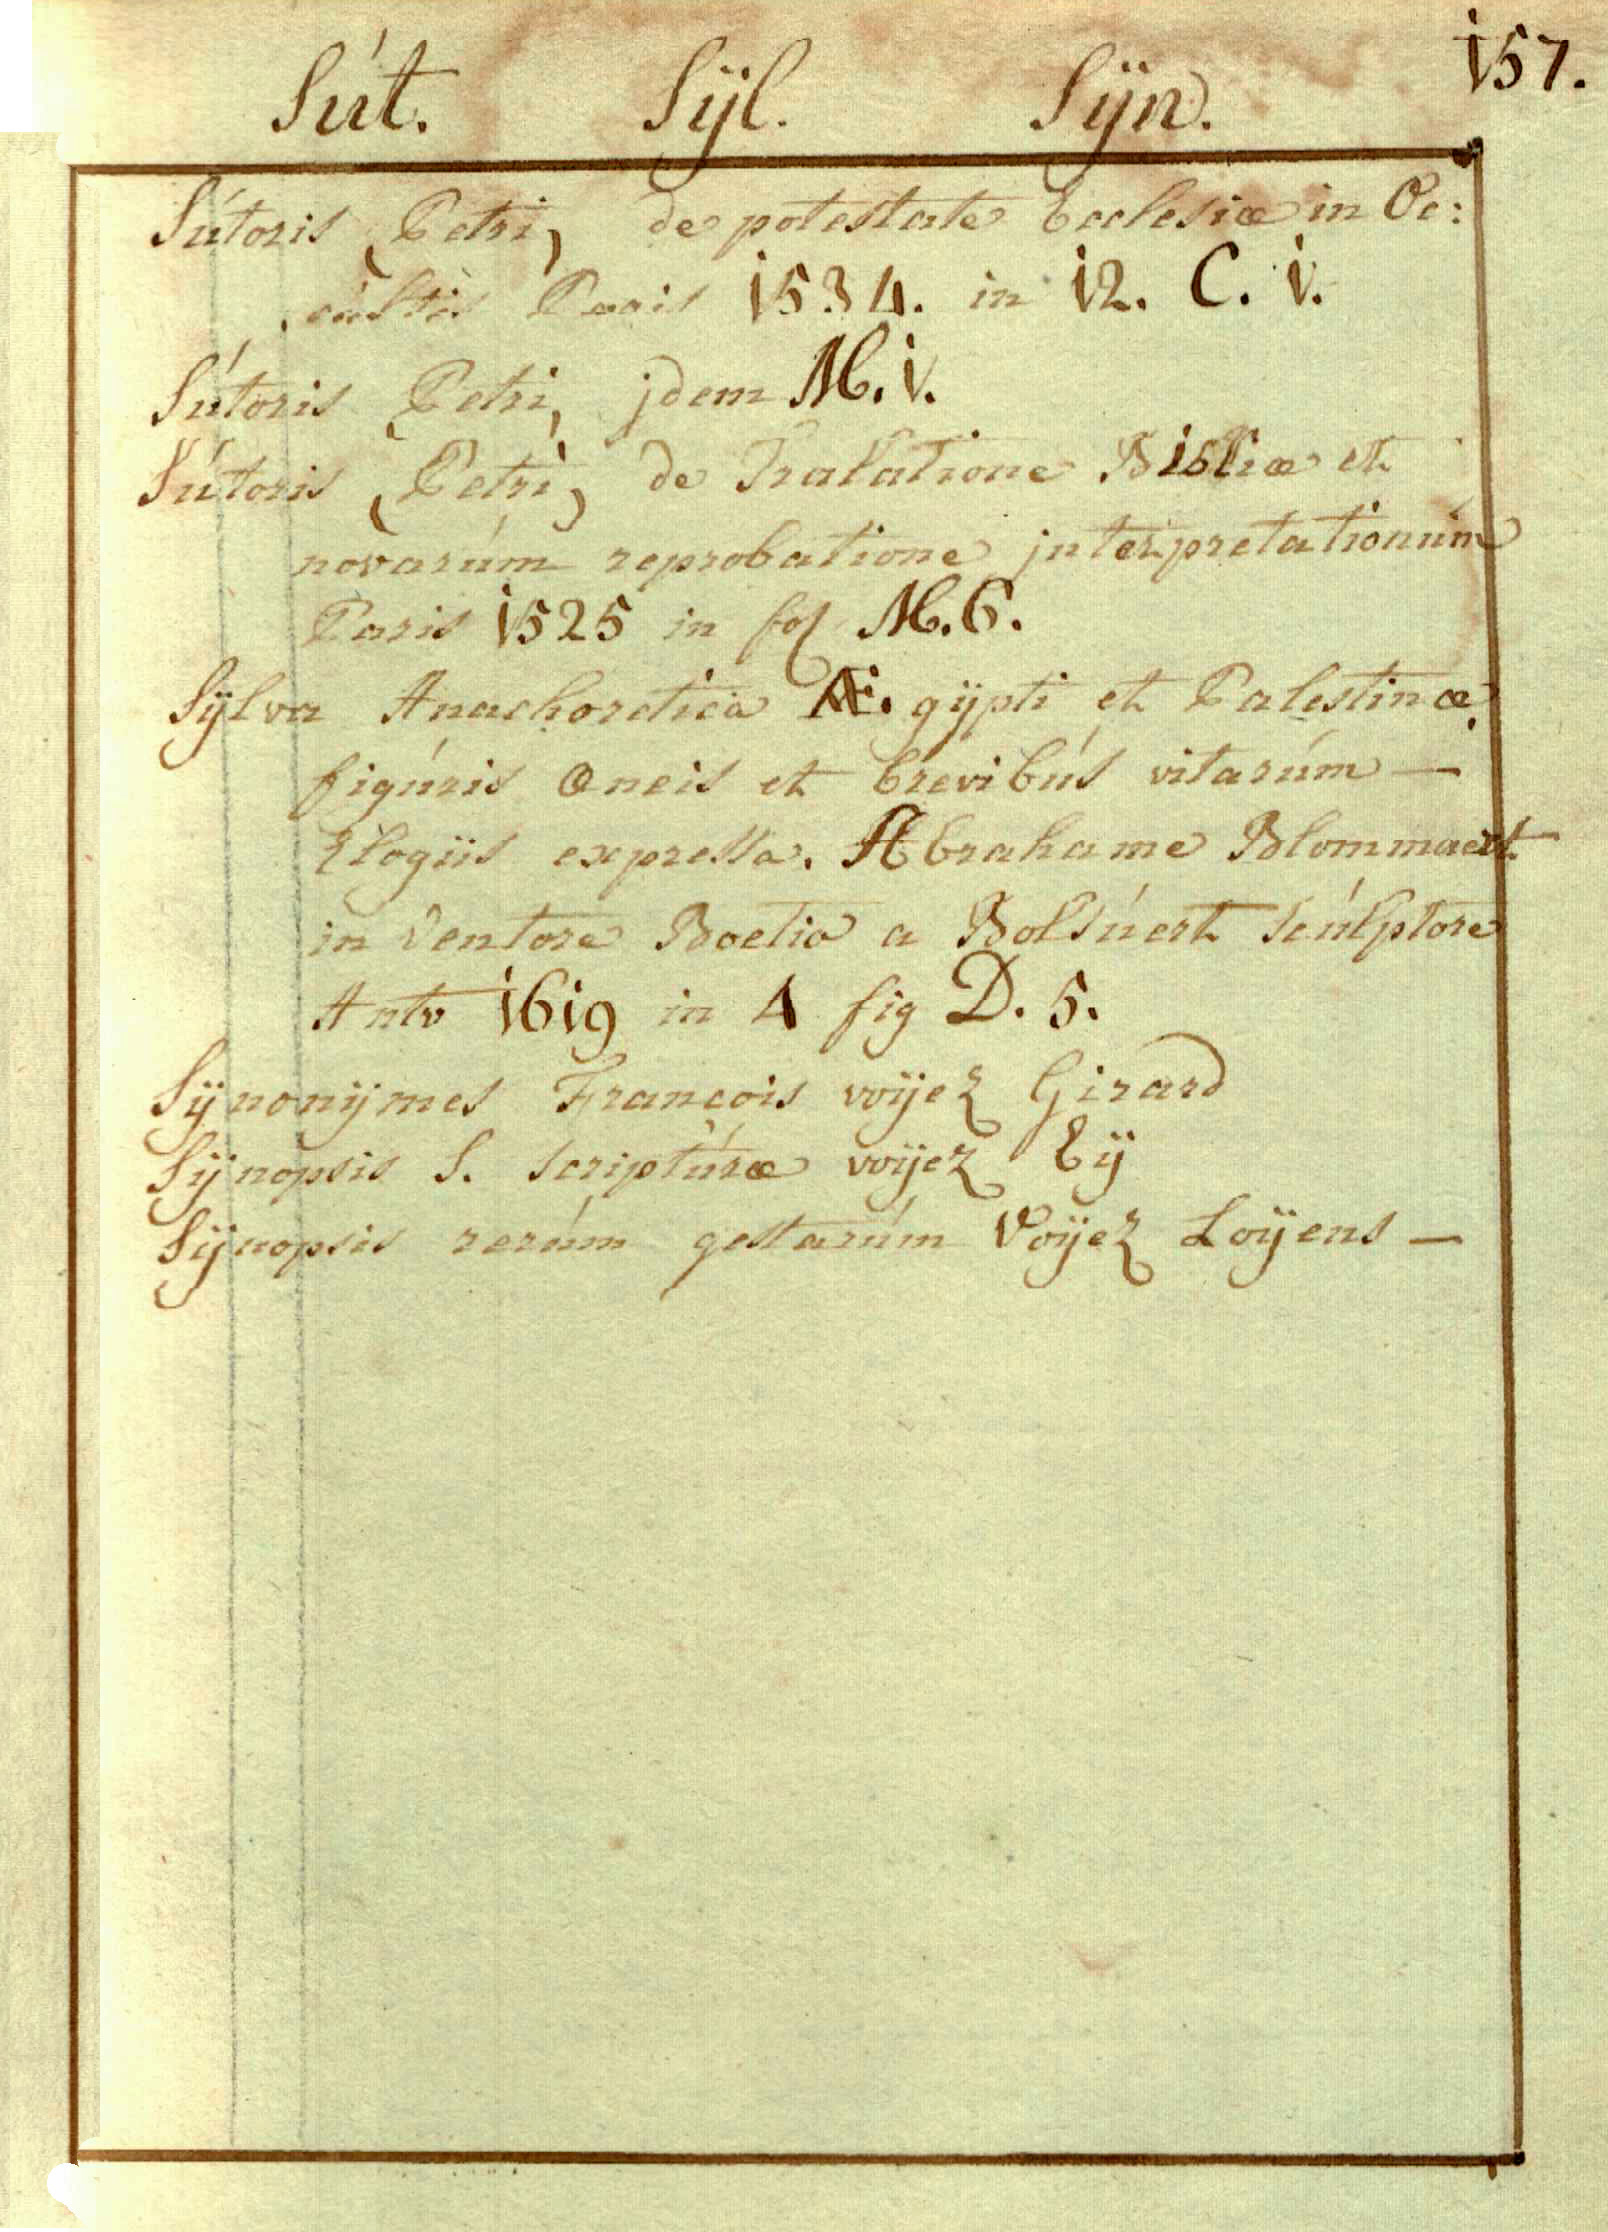 157.
Sút. Sÿl. Sÿn.
Sútoris Petri, de potestate Ecclesiæ in Oc:
cúltis Paris 1534. in 12. C. 1.
Sútoris Petri, jdem M. 1.
Sútoris Petri, de Tralatione Bibliæ et
novarúm reprobatione jnterpretationúm
Paris 1525 in fol M. 6.
Sÿlva Anachoretica Æ. gÿpti et Palestinæ
figúris æneis et brevibús vitarúm —
Elogiis expressa. Abrahame Blommaert
in ventore Boetio a Bolsúert scúlptore
Antv 1619 in 4 fig D. 5.
Sÿnonÿmes Francois voÿez Girard
Sÿnopsis S. scriptúræ voÿez Eÿ
Sÿnopsis rerúm gestarúm Voÿez Loÿens —